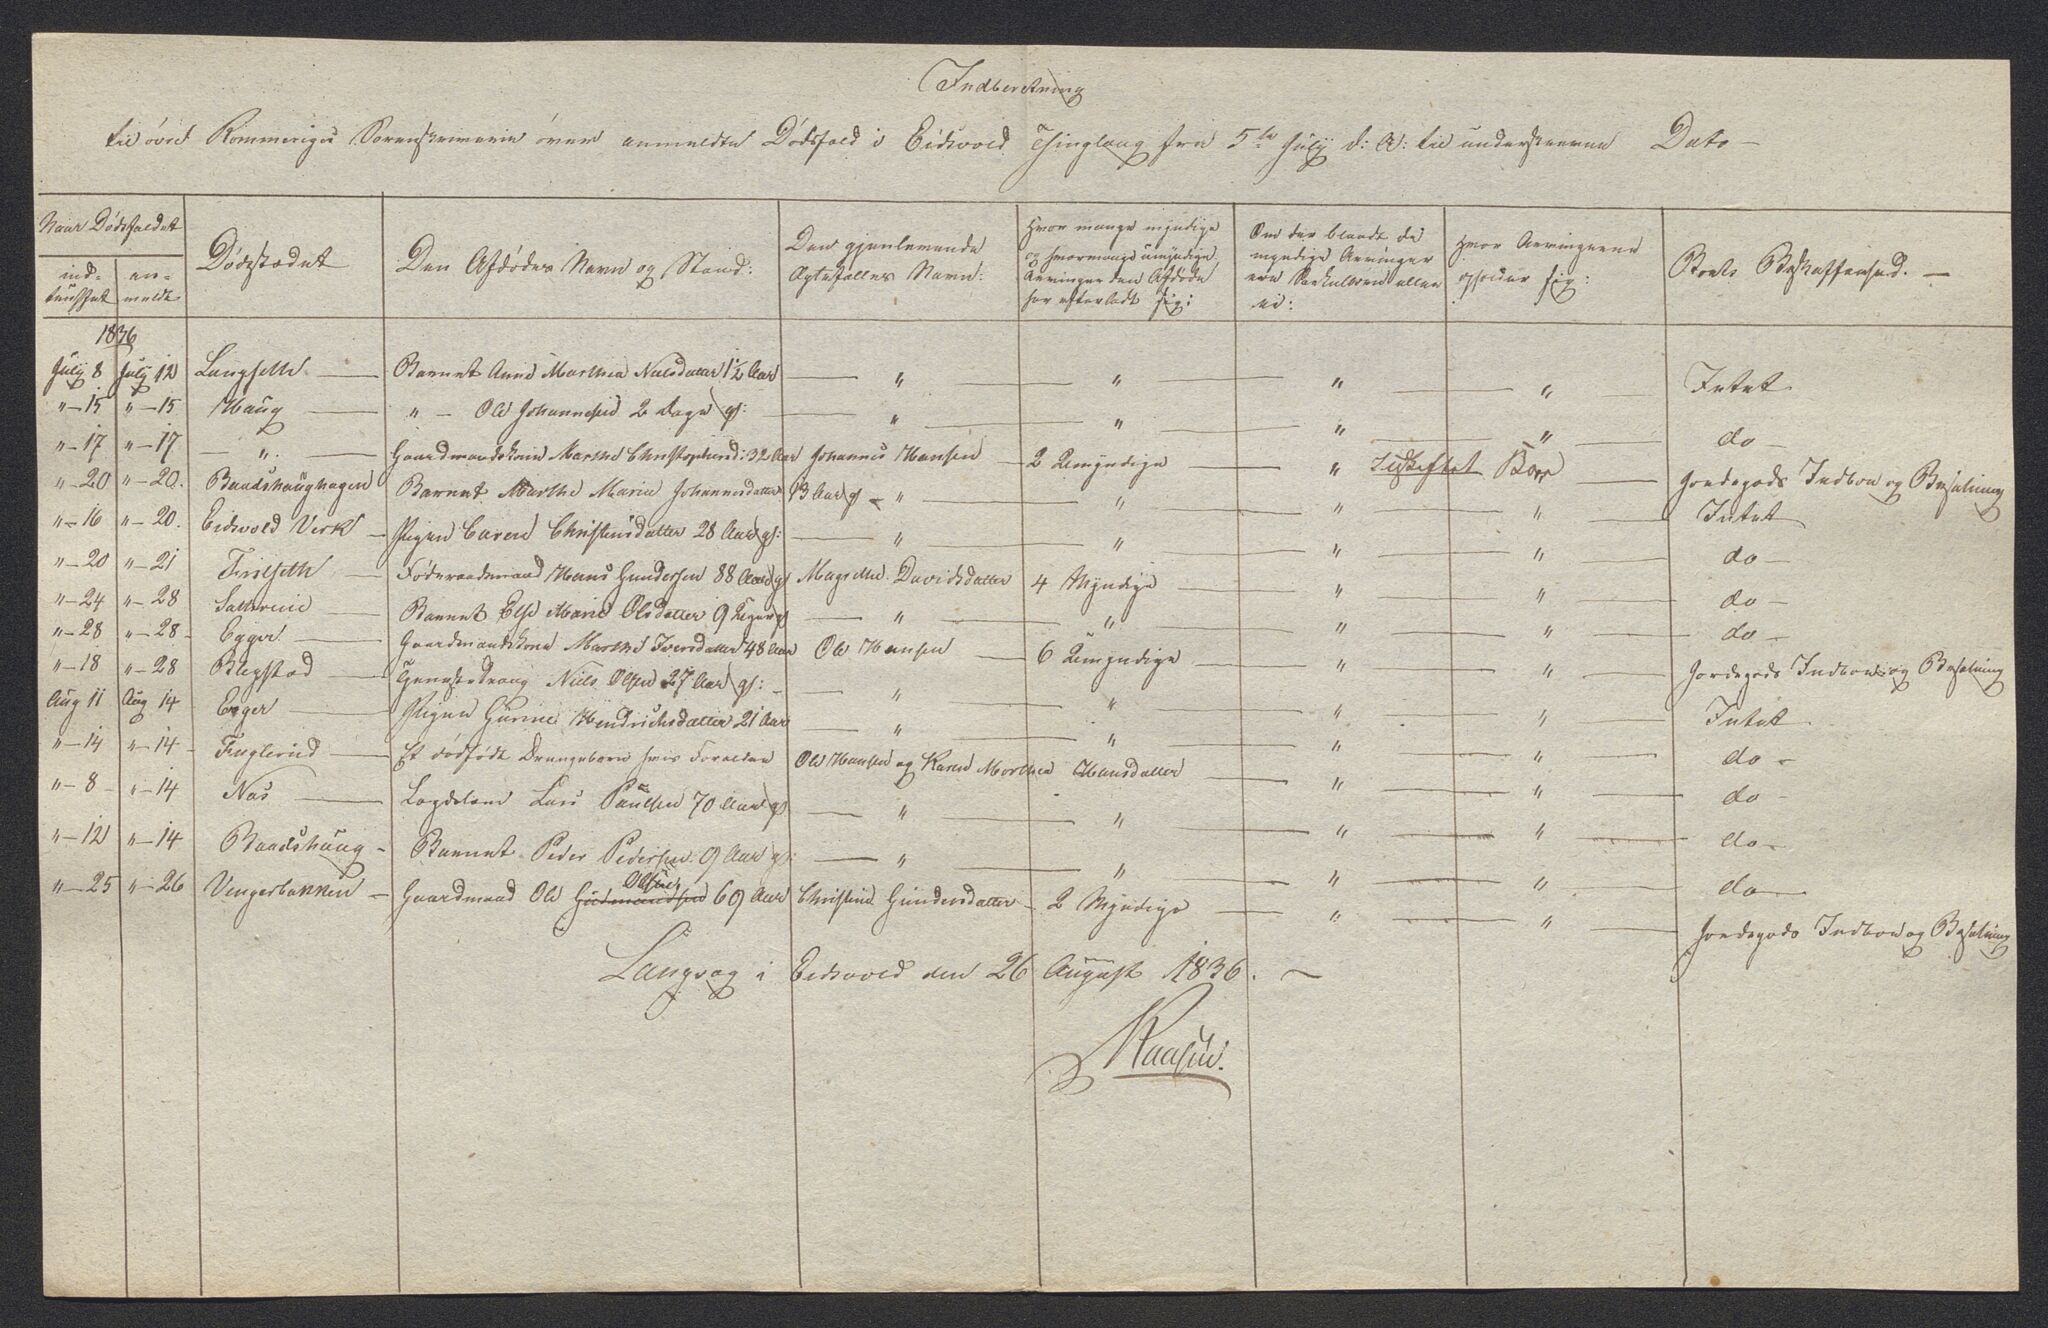 Indberetning
til øvre Rommeriges Sorenskriverie over anmeldte Dødsfald i Eidsvold Thinglaug fra 5te July d: A: til underskrevne Dato —
Naar Dødsfaldet
ind-truffet | an-meldt | Dødsstedet | Den Afdødes Navn og Stand: | Den gjenlevende Ægtefælles Navn: | Hvor mange myndige og hvormange umyndige Arvinger den Afdøde har efterladt sig: | Om der blandt de myndige Arvinger ere Fraværende eller ei: | Hvor Arvingerne opholder sig: | Boets Beskaffenhed. —
1836
July 8 | July 12 | Langseth — | Barnet Anne Marthea Nielsdatter 1½ Aar | — " — | " | " | " — | Intet
" — 15 | " — 15 | Haug — | " — Ole Johannesen 2 Dage gl: | — " — | " | " | " | do —
" — 17 | " — 17 | — " — | Gaardmandskone Marthe Christophersd: 32 Aar | Johannes Hansen | — 2 Umyndige | " | — | Jordegods Indboe og Besætning
" — 20 | " — 20. | Baadshaughagen | Barnet Marthe Marie Johannesdatter 13 Aar gl | — " — | " | " | " — | Intet
" — 16 | " — 20. | Eidsvold Verk — | Pigen Caren Christensdatter 28 Aar gl: | — " — | " | " | " — | do —
" — 20 | " — 21 | Frilseth — | Føderaadsmand Hans Gundersen 88 Aar gl | Magrethe Davidsdatter | 4 Myndige — | " | " — | do —
" — 24 | " — 28 | — | Barnet Else Marie Olsdatter 9 Uger gl | — " — | " | " | " — | do —
" — 28 | " — 28 - | Egger — | Gaardmandskone Marthe Iversdatter 48 Aar | Ole Hansen — | 6 Umyndige — | " | " — | Jordegods Indboe og Besætning
" — 18 | " — 28 | Blegstad — | Tjenestedreng Niels Olsen 27 Aar gl: - | — " — | " | " | " — | Intet
Aug 11 | Aug 14 - | Egger — | Pigen Gurine Hendrichsdatter 21 Aar | — " — | " | " | " — | do -
" — 14 | " — 14 - | Fuglerud — | Et dødfødt Drengebarn hvis Forældre | Ole Hansen og Karen Marthea | Hansdatter — | " | " — | do -
" — 8 - | " — 14 | Næs — | Lægdslem Lars Paulsen 70 Aar gl | — " — | " | " | " — | do -
" — 12 | " — 14 | Baadshaug - | Barnet Peder Pedersen 9 Aar gl: | — " — | " | " | " — | do —
" — 25 | " — 26 | Vengerbakken - | Gaardmand Ole Gudmundsen Olsen 69 Aar | Christine Gundersdatter - | 2 Myndige — | " | " — | Jordegods Indboe og Besætning
i Eidsvold den 26 August 1836. —